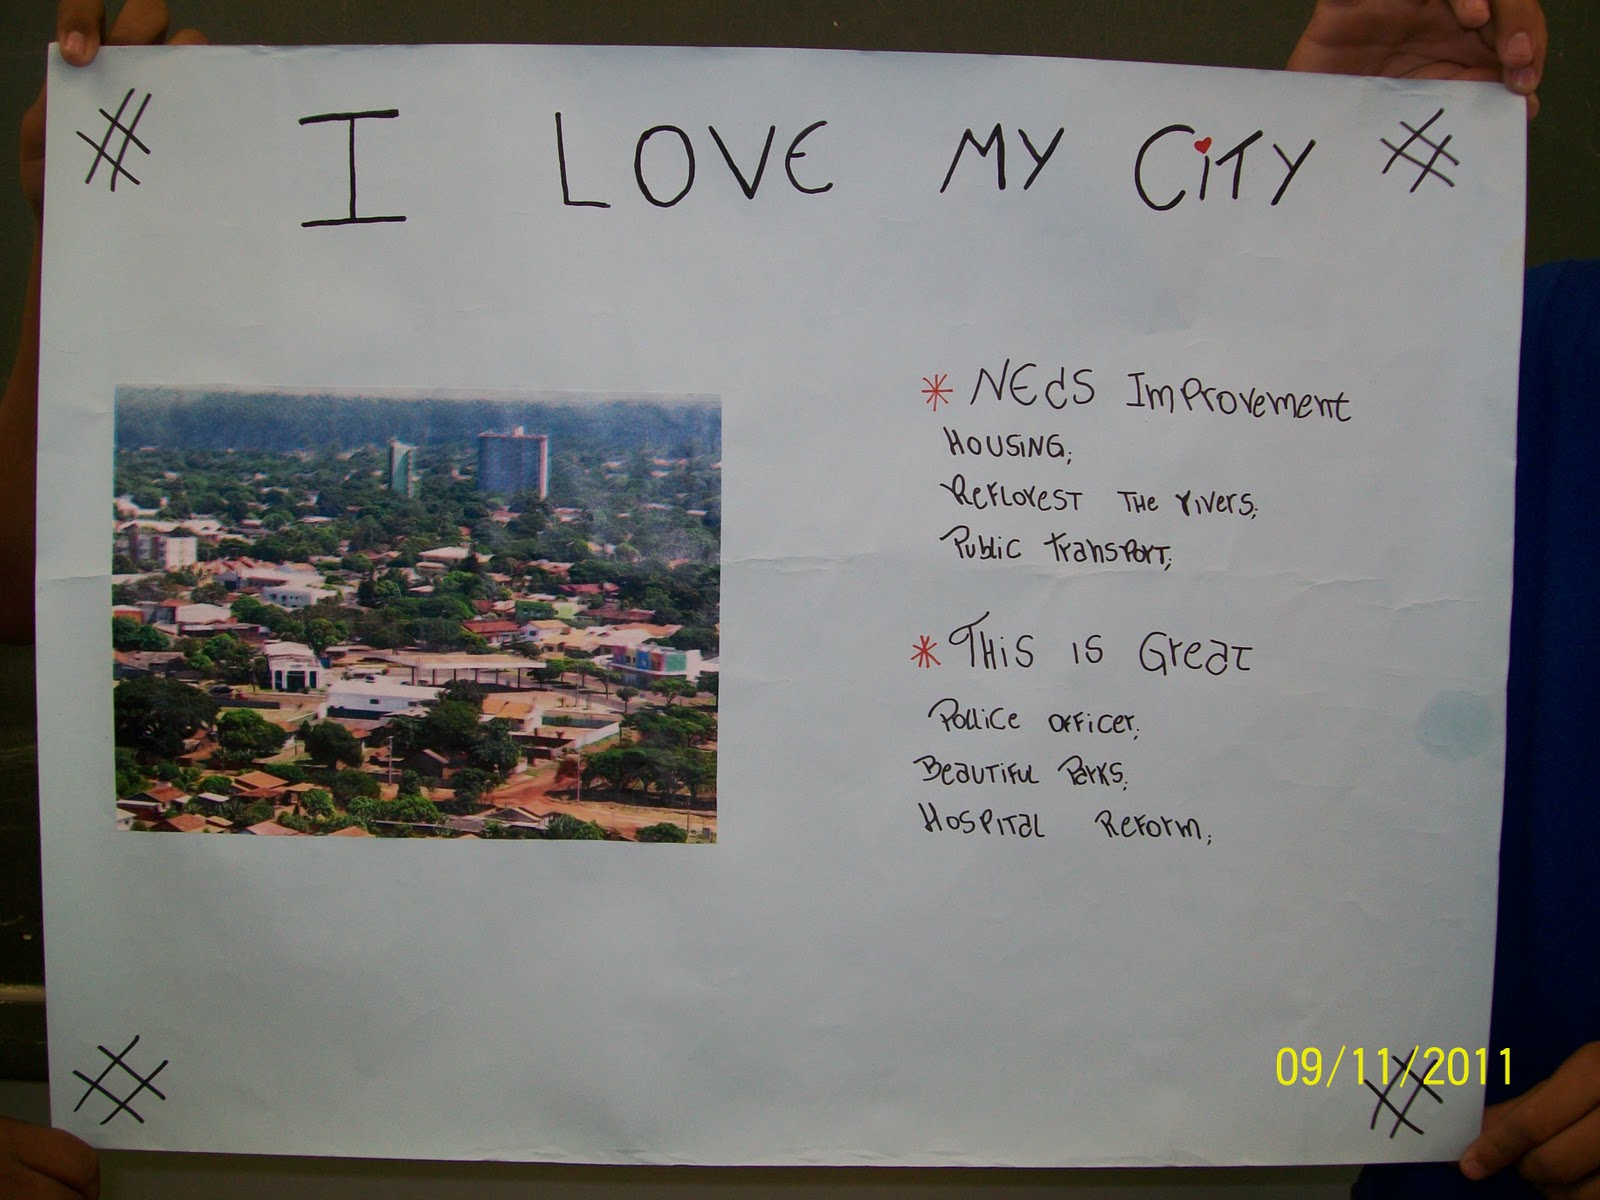 I LOVE MY CiTY
* NEdS Improvement
HOUSING;
Reflorest The rivers;
Public Transport;
* THis is Great
Pollice officer;
Beautiful Parks;
Hospital Reform;
09/11/2011